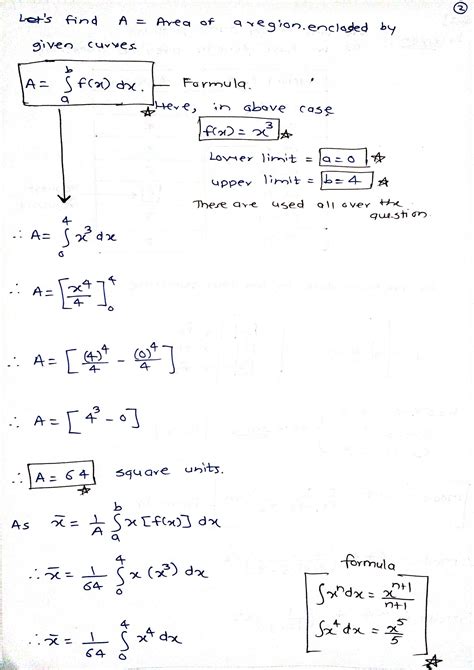 ②
Let's find A = Area of a region enclosed by
given curves
A = ∫_a^b f(x) dx. — Formula.
☆ Here, in above case
f(x) = x³ ☆
Lower limit = a = 0 ☆
upper limit = b = 4 ☆
These are used all over the
question
∴ A = ∫_0^4 x³ dx
∴ A = [x⁴/4]_0^4
∴ A = [(4)⁴/4 - (0)⁴/4]
∴ A = [4³ - 0]
∴ A = 64 square units.
☆
As x̄ = 1/A ∫_a^b x [f(x)] dx
∴ x̄ = 1/64 ∫_0^4 x (x³) dx
∴ x̄ = 1/64 ∫_0^4 x⁴ dx
formula
∫xⁿ dx = xⁿ⁺¹/n+1
∫x⁴ dx = x⁵/5
☆